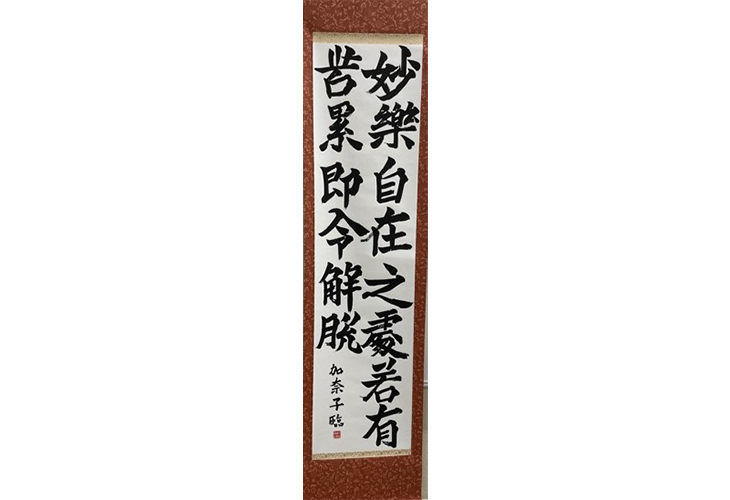 妙樂自在之處若有
苦累即令解脱
加奈子臨